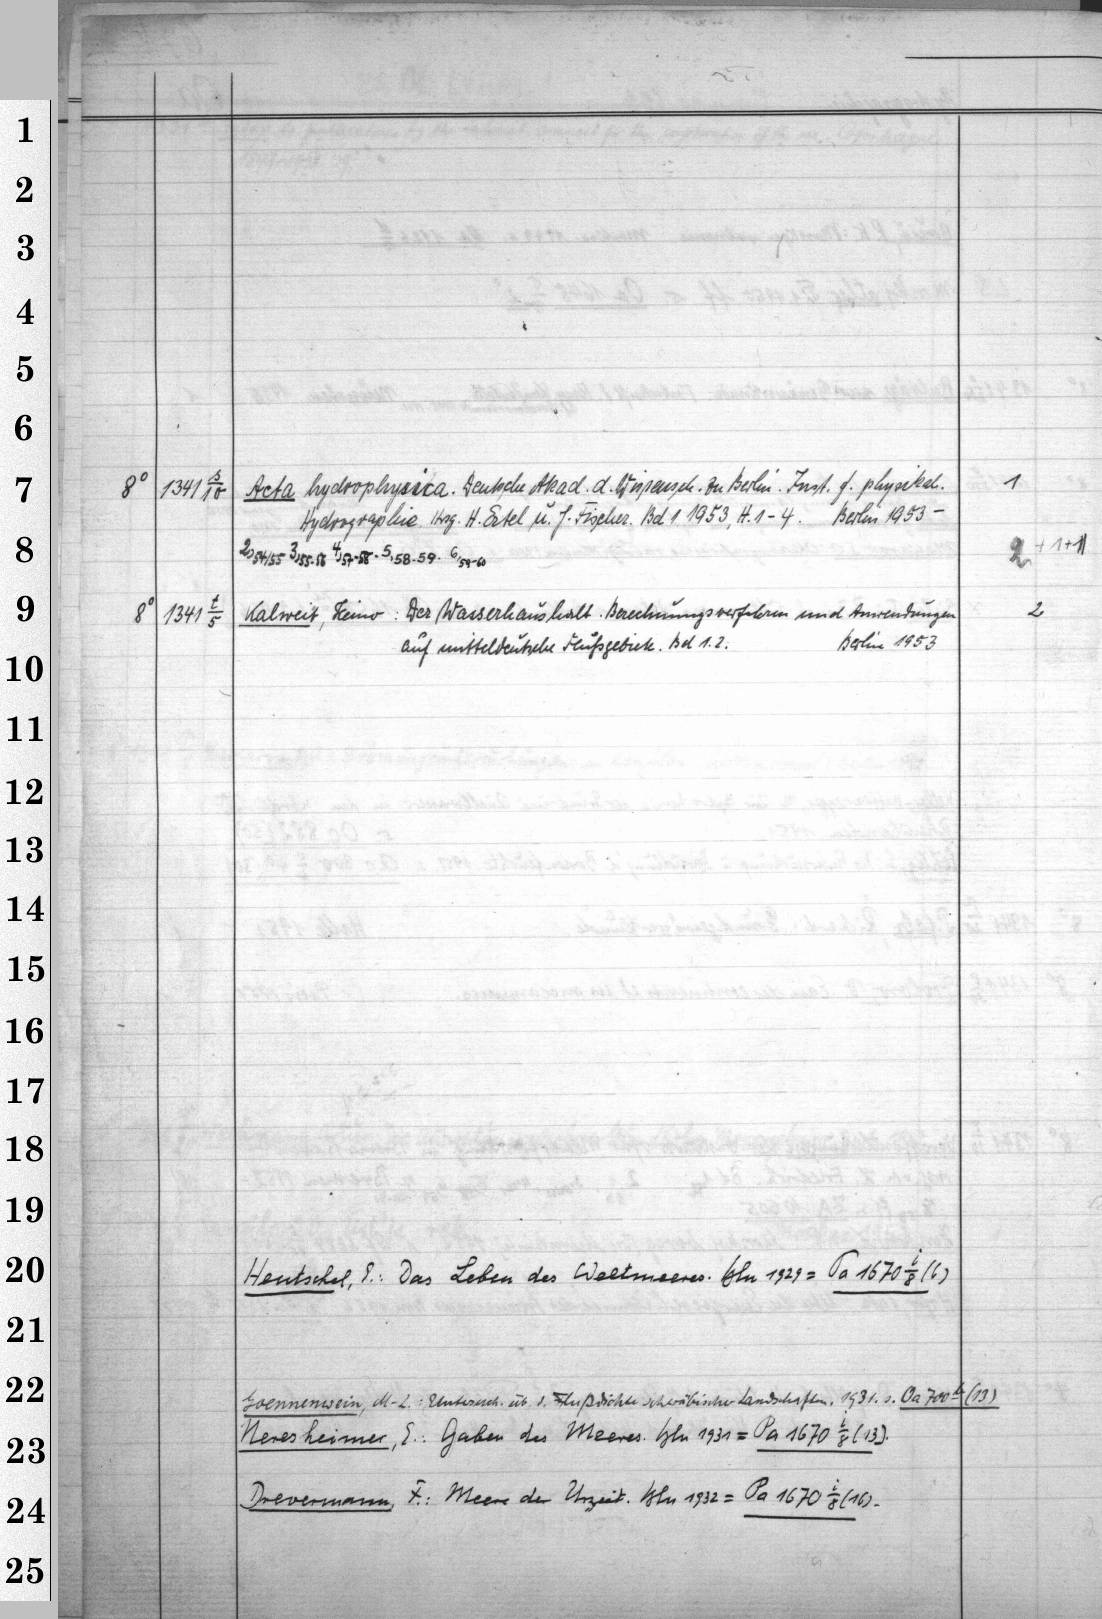 1
2
3
4
5
6
7 8° 1341 s/10 Acta hydrophysica. Deutsche Akad. d. Wissensch. zu Berlin. Inst. f. physikal. 1
Hydrographie. Hrsg. H. Ertel u. J. Fischer. Bd 1 1953, H. 1-4. Berlin 1953 -
8 2,54/55 3,55-56 4,57-58 · 5,58-59 · 6,59-60 2 +1+1
9 8° 1341 t/5 Kalweit, Heino: Der Wasserhaushalt. Berechnungsverfahren und Anwendungen 2
auf mitteldeutsche Flußgebiete. Bd 1.2. Berlin 1953
10
11
12
13
14
15
16
17
18
19
20 Hentschel, E.: Das Leben des Weltmeeres. Bln 1929 = Pa 1670 i/8 (6)
21
22 Goennenwein, M-L.: Untersuch. üb. d. Flußdichte schwäbischer Landschaften. 1931. s. Oa 700 (13)
23 Neresheimer, E.: Gaben des Meeres. Bln 1931 = Pa 1670 i/8 (13).
24 Drevermann, F.: Meere der Urzeit. Bln 1932 = Pa 1670 i/8 (16).
25